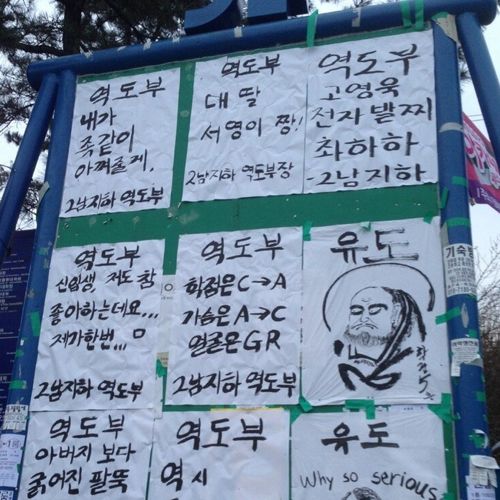 역도부
내가
족같이
아껴줄게.
2남지하 역도부
역도부
대 딸
서영이 짱!
2남지하 역도부장
역도부
고영욱
전자발찌
최하하
-2남지하
역도부
신입생, 저도 참
좋아하는데요...
제가한번,,,ㅁ
2남지하 역도부
역도부
학점은 C→A
가슴은 A→C
얼굴은 GR
2남지하 역도부
유도
역도부
아버지 보다
굵어진 팔뚝
역도부
역시
유도
Why so serious